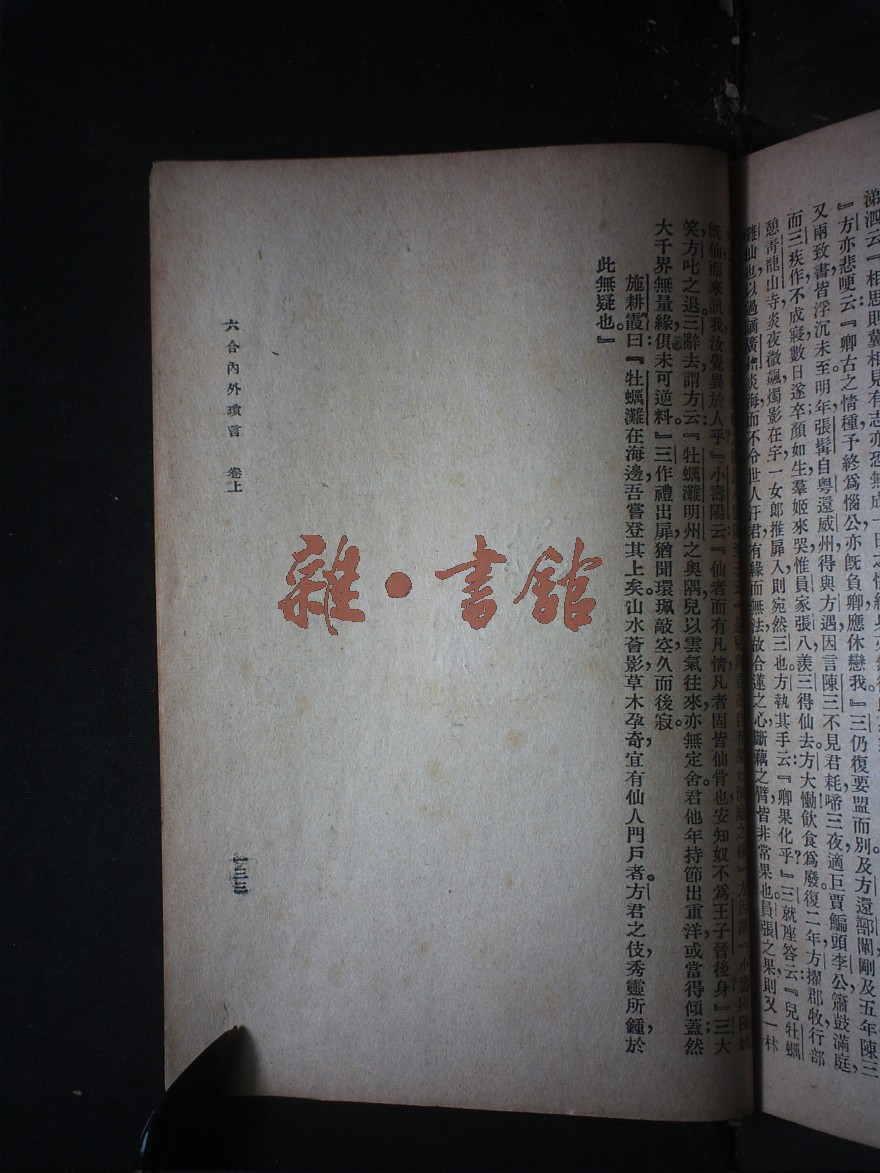 涕泗云『相思則冀相見有志亦恐無成一日之情終身
』方亦悲哽云『卿古之情種予終爲惱公亦旣負卿應休戀我』三仍復要盟而別及方還鄣闈剛及五年陳三
又兩致書皆浮沉未至明年張髯自粵還威州得與方遇因言陳三不見君耗啼三夜適巨賈鯿頭李公簫鼓滿庭，
而三疾作不成寢數日遂卒顏如生羣姬來哭惟員家張八羨三得仙去。方大慟飲食爲廢復二年方擢郡牧行部
憩靑龍山寺炎夜微飆燭影在宇一女郎推扉入則宛然三也。方執其手云：『卿果化乎？』三就座答云：『兒牡蠣
灘山也以過
海而不令世人汙君有緣而無法故合蓮之心斷藕之臂皆非常果也。員張之果則又一林
旣仙而來訊我汝覺異於人乎』小壽陽云『仙者而有凡情凡者固皆仙骨也安知奴不爲王子晉後身』三大
笑方叱之退。三辭去謂方云：『牡蠣灘明州之奧隅兒以雲氣往來亦無定舍君他年持節出重洋或當得傾蓋然
大千界無量緣俱未可逆料。』三作禮出扉猶聞環珮敲空久而後寂。
施耕霞曰：『牡蠣灘在海邊吾嘗登其上矣。山水薈影，草木孕奇，宜有仙人門戶者。方君之伎秀靈所鍾，於
此無疑也。』
六合內外瑣言　卷上
一三三
雜·書館